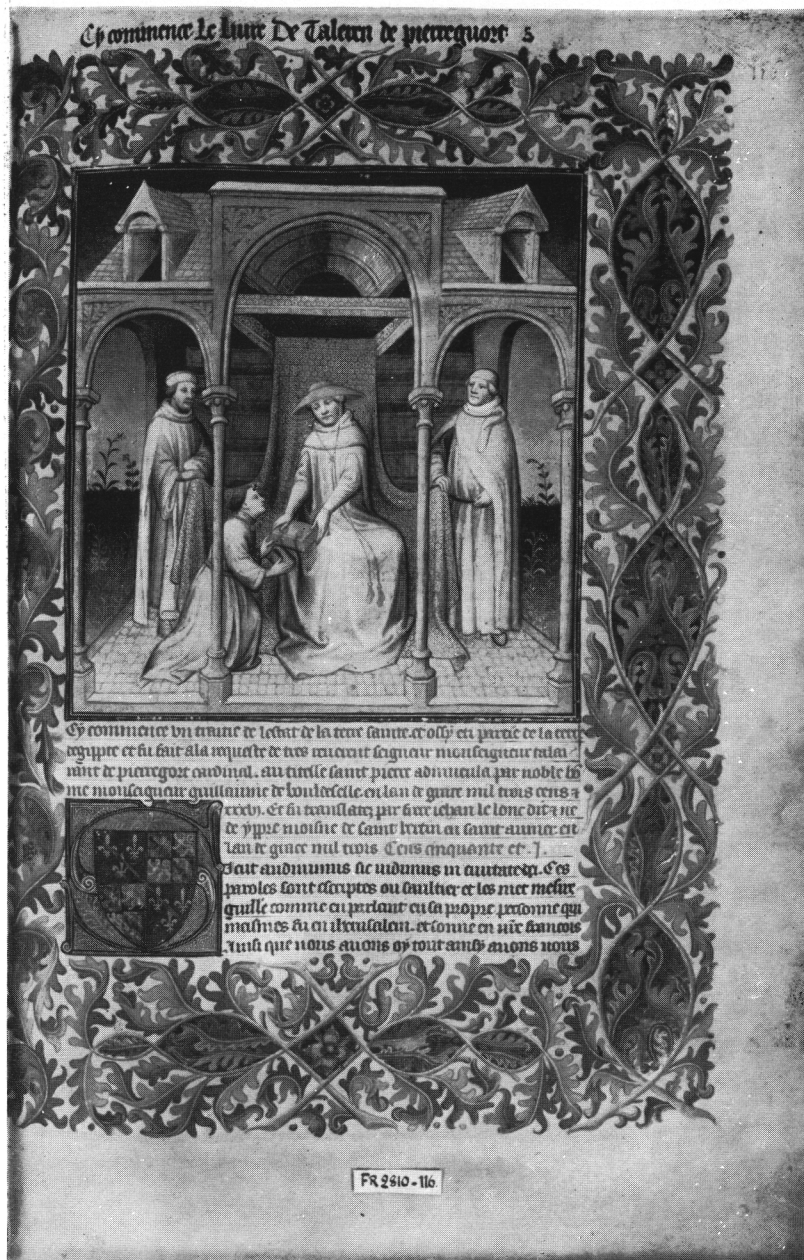 Cy commence Le liure De Taleran de pierreguort
Cy commence vn traitie de lestat de la terre sainte. et ossy en partie de la terre
degippte et fu fait a la requeste de tres reuerent seigneur monseigneur talai
rant de pierregort cardinal. au titelle saint pierre aduincula par noble ho
me monseigneur guillaume de bouldeselle. en lan de grace mil trois cens &
xxxvj. Et fu translatez par frere iehan le lonc dit & ne
de yppre moisne de saint bertin en saint aumer. en
lan de grace mil trois Cens cinquante et . j .
Sicut audiuimus sic vidimus in ciuitate. Ces
paroles sont escriptes ou saultier et les met
comme en parlant en sa propre personne qui
meismes fu en iherusalem. et sonne en francois
Ainsi que nous auons oy tout ainsy auons nous
FR 2810-116